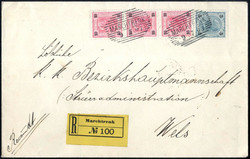 Löbliche
k. k. Bezirkshauptmannschaft
(Steueradministration)
Wels
R
Marchtrenk
№ 100